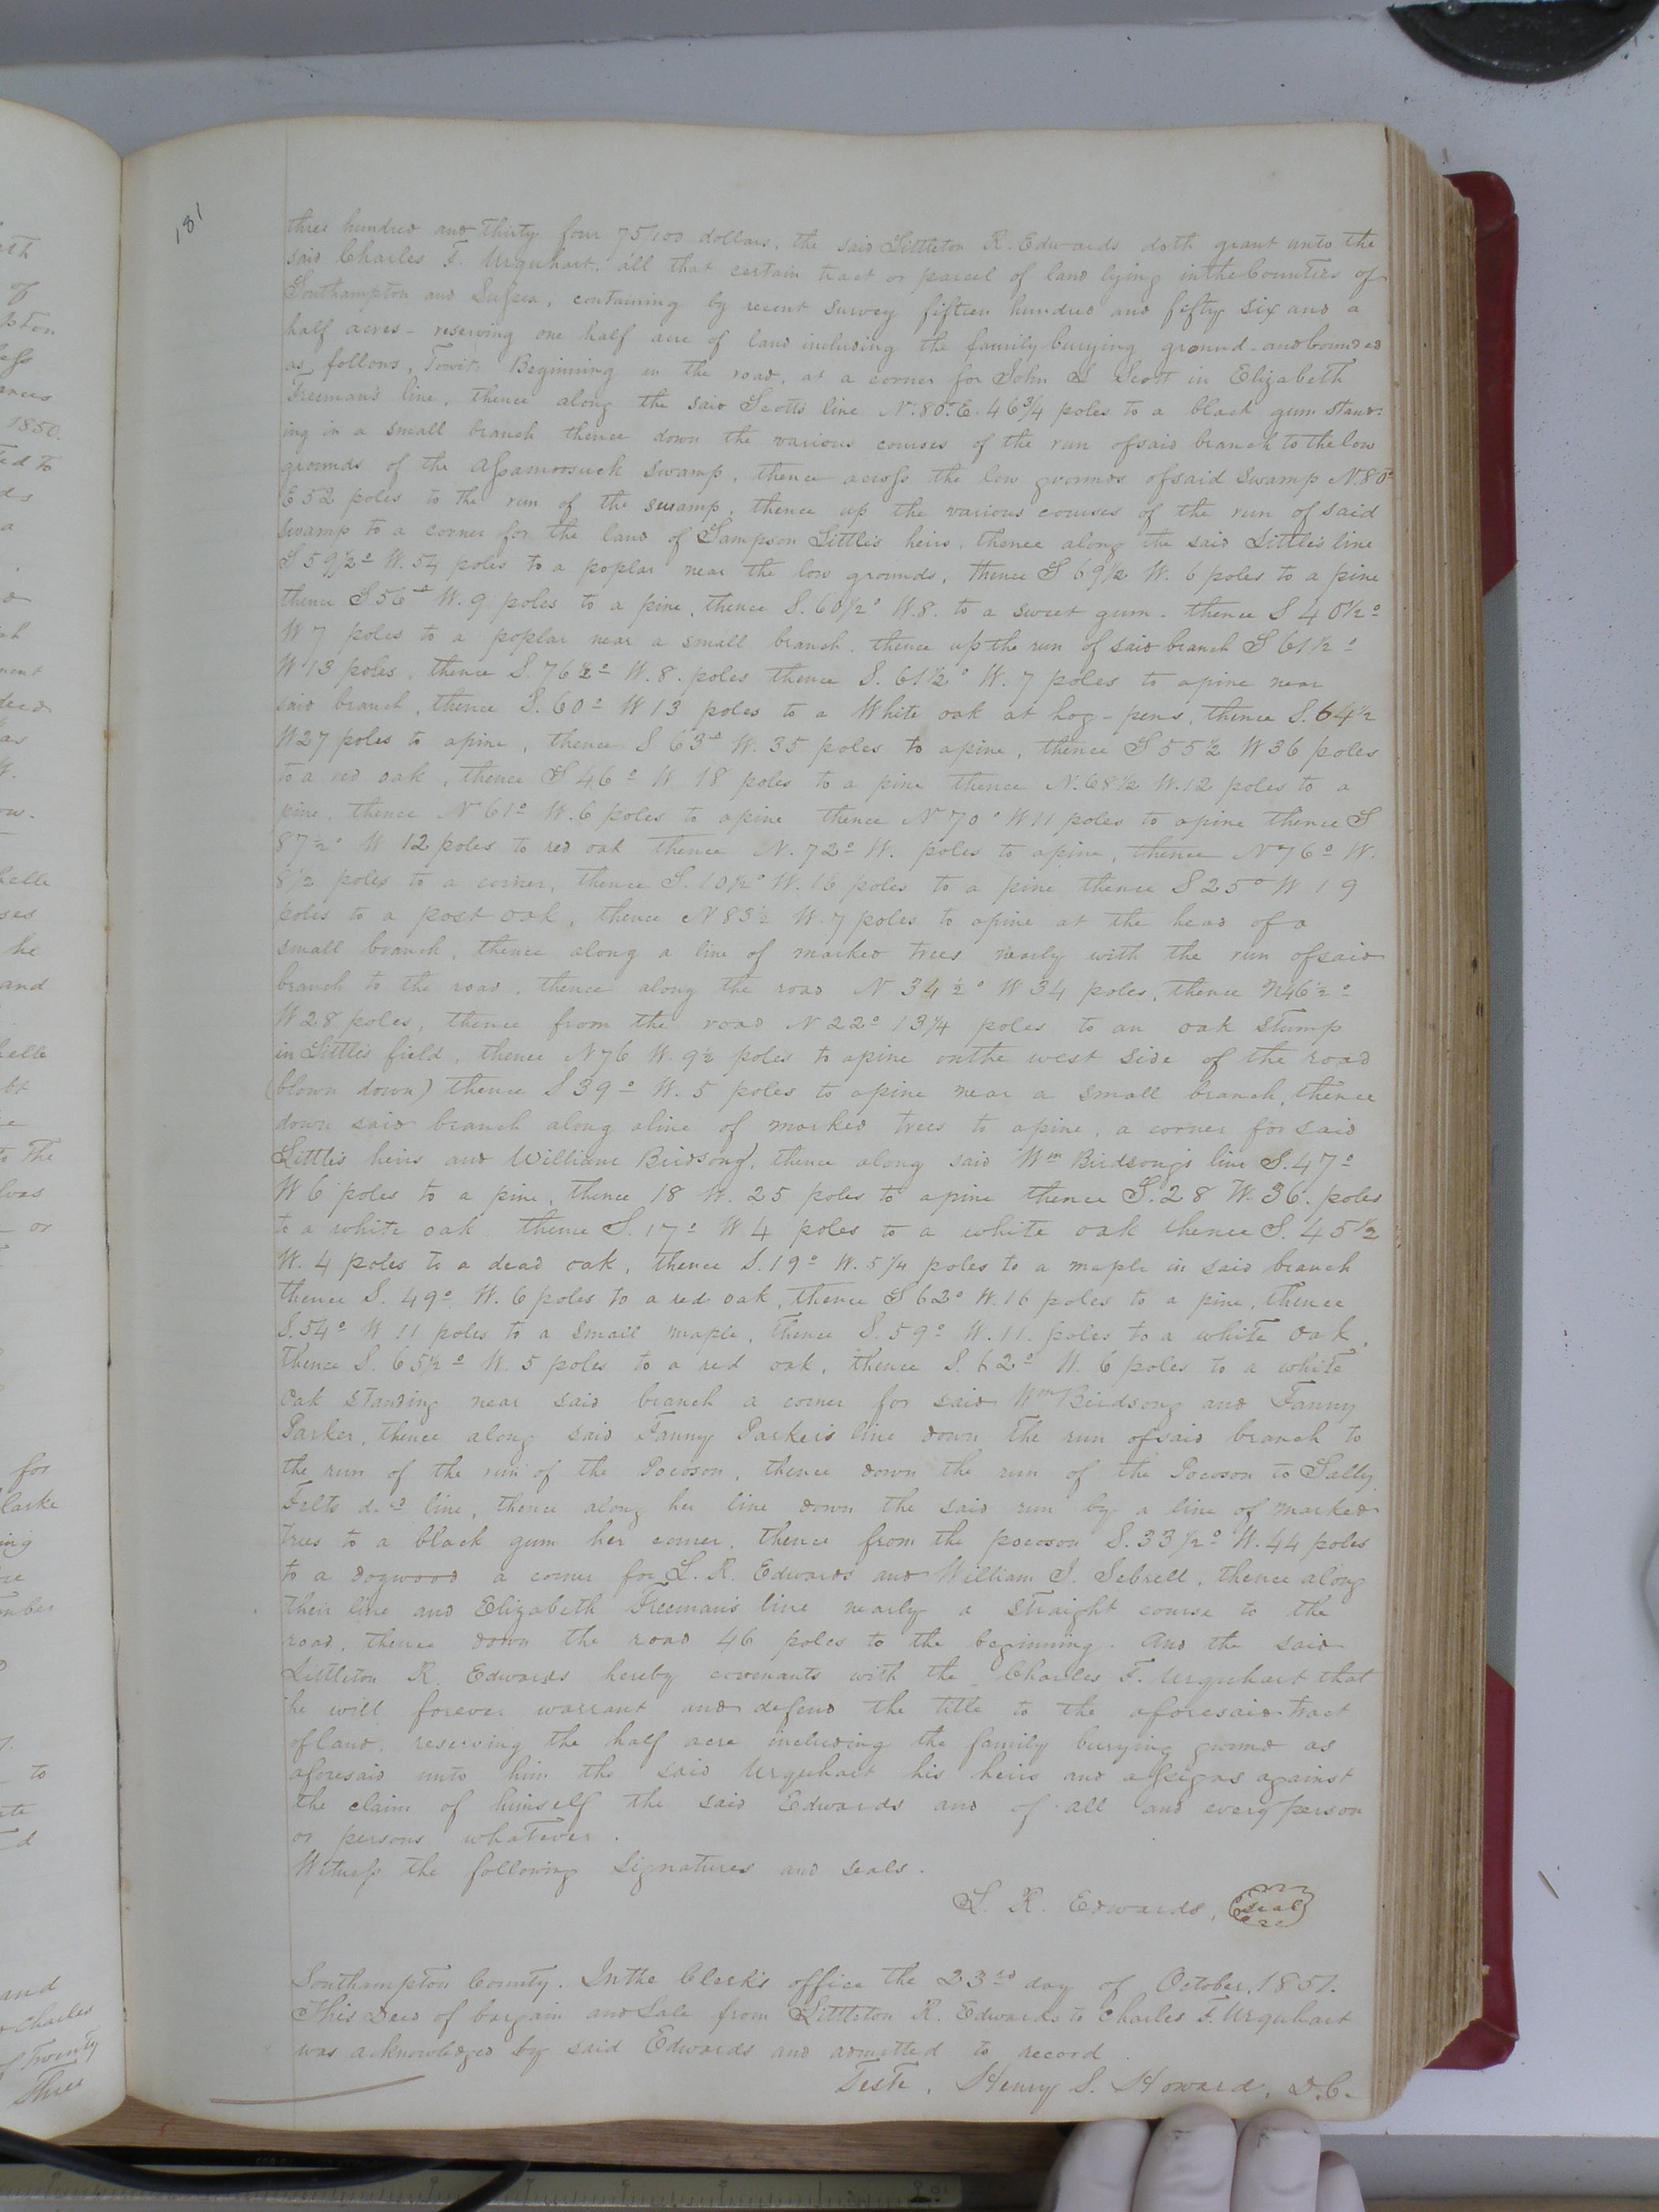 181
three hundred and thirty four 75/100 dollars, the said Littleton R. Edwards doth grant unto the
said Charles F. Urquhart, all that certain tract or parcel of land lying in the Counties of
Southampton and Sussex, containing by recent survey fifteen hundred and fifty six and a
half acres - reserving one half acre of land including the family burying ground - and bounded
as follows, Towit: Beginning in the road, at a corner for John S Scott in Elizabeth
Freeman's line, thence along the said Scotts line N. 80° E. 46 3/4 poles to a black gum stand-
ing in a small branch thence down the various courses of the run of said branch to the low
grounds of the Assamoosuck swamp, thence across the low grounds of said Swamp N. 80°
E 52 poles to the run of the swamp, thence up the various courses of the run of said
swamp to a corner for the land of Sampson Little's heirs, thence along the said Little's line
S 59 1/2° W. 54 poles to a poplar near the low grounds, thence S 69 1/2 W. 6 poles to a pine
thence S 56° W. 9 poles to a pine, thence S. 60 1/2° W. 8. to a sweet gum - thence S 40 1/2°
W 7 poles to a poplar near a small branch. thence up the run of said branch S 61 1/2°
W 13 poles, thence S. 76 1/2° W. 8. poles thence S. 61 1/2° W. 7 poles to a pine near
said branch, thence S. 60° W 13 poles to a White oak at hog-pens, thence S. 64 1/2
W 27 poles to a pine, thence S 63° W. 35 poles to a pine, thence S 55 1/2 W 36 poles
to a red oak, thence S 46° W 18 poles to a pine thence N. 68 1/2 W. 12 poles to a
pine, thence N 61° W. 6 poles to a pine thence N 70° W 11 poles to a pine thence S
87 1/2° W 12 poles to red oak thence N. 72° W. poles to a pine, thence N 76° W.
8 1/2 poles to a corner, thence S. 10 1/2° W. 16 poles to a pine thence S 25° W 19
poles to a post oak, thence N 83 1/2 W. 7 poles to a pine at the head of a
small branch, thence along a line of marked trees nearly with the run of said
branch to the road, thence along the road N 34 1/2° W 34 poles, thence N46 1/2°
W 28 poles, thence from the road N 22° 13 1/4 poles to an oak stump
in Little's field, thence N 76 W. 9 1/2 poles to a pine on the west side of the road
(blown down) thence S 39° W. 5 poles to a pine near a small branch, thence
down said branch along a line of marked trees to a pine, a corner for said
Little's heirs and William Birdsong, thence along said Wm Birdsong's line S. 47°
W 6 poles to a pine, thence 18 W. 25 poles to a pine thence S. 28 W. 36. poles
to a white oak thence S. 17° W 4 poles to a white oak thence S. 45 1/2
W. 4 poles to a dead oak, thence S. 19° W. 5 1/4 poles to a maple in said branch
thence S. 49° W. 6 poles to a red oak, thence S 62° W. 16 poles to a pine, thence
S. 54° W 11 poles to a small maple, thence S. 59° W. 11. poles to a white oak,
thence S. 65 1/2° W. 5 poles to a red oak, thence S. 62° W. 6 poles to a white
oak standing near said branch a corner for said Wm Birdsong and Fanny
Parker, thence along said Fanny Parker's line down the run of said branch to
the run of the run of the Pocoson, thence down the run of the Pocoson to Sally
Felts dec'd line, thence along her line down the said run by a line of marked
trees to a black gum her corner, thence from the pocoson S. 33 1/2° W. 44 poles
to a dogwood a corner for L. R. Edwards and William J. Sebrell, thence along
their line and Elizabeth Freeman's line nearly a straight course to the
road, thence down the road 46 poles to the beginning. And the said
Littleton R. Edwards hereby covenants with the Charles F. Urquhart that
he will forever warrant and defend the title to the aforesaid tract
of land, reserving the half acre including the family burying ground as
aforesaid unto him the said Urquhart his heirs and assigns against
the claim of himself the said Edwards and of all and every person
or persons whatever.
Witness the following signatures and seals.
L. R. Edwards, (seal)
Southampton County. In the Clerk's office the 23rd day of October, 1851.
This Deed of bargain and Sale from Littleton R. Edwards to Charles F. Urquhart
was acknowledged by said Edwards and admitted to record.
Teste, Henry S. Howard, D.C.